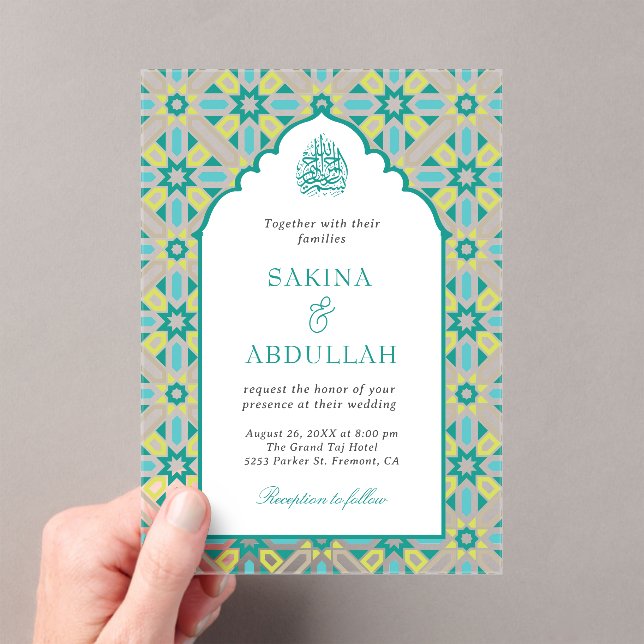 بسم الله الرحمن الرحيم
Together with their
families
SAKINA
&
ABDULLAH
request the honor of your
presence at their wedding
August 26, 20XX at 8:00 pm
The Grand Taj Hotel
5253 Parker St. Fremont, CA
Reception to follow